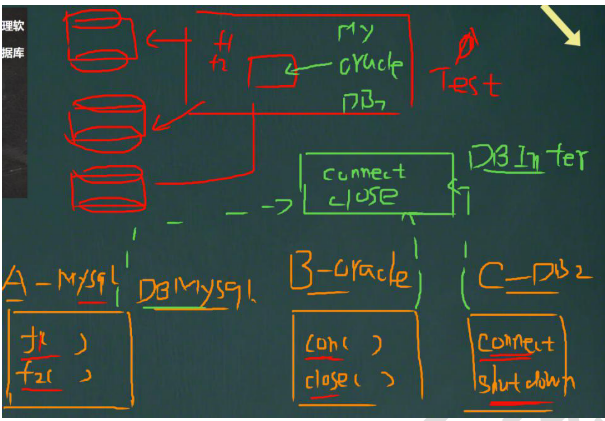 理软
据库
f1
f2
My
oracle
DB2
Test
DBInter
connect
close
A-Mysql
DBMysql
B-oracle
C-DB2
f1( )
f2( )
con( )
close( )
connect
shutdown